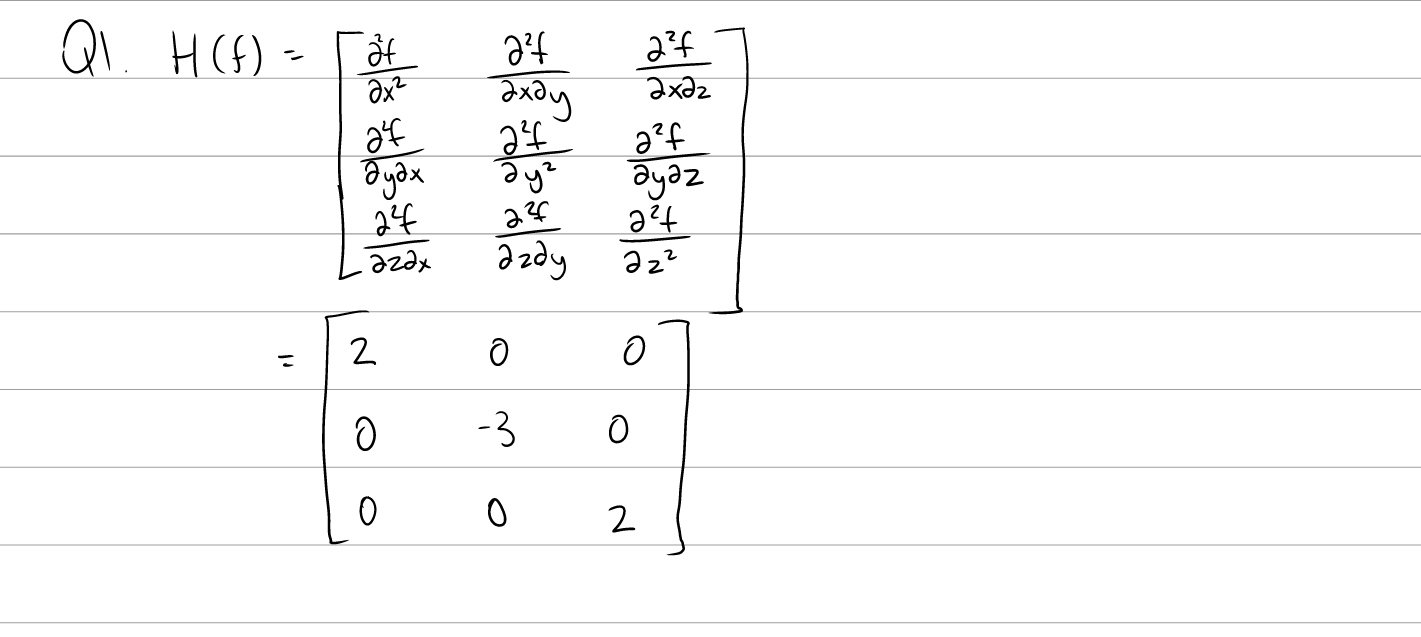 Q1. H(f) = [ ∂²f/∂x² ∂²f/∂x∂y ∂²f/∂x∂z
∂²f/∂y∂x ∂²f/∂y² ∂²f/∂y∂z
∂²f/∂z∂x ∂²f/∂z∂y ∂²f/∂z² ]
= [ 2 0 0
0 -3 0
0 0 2 ]